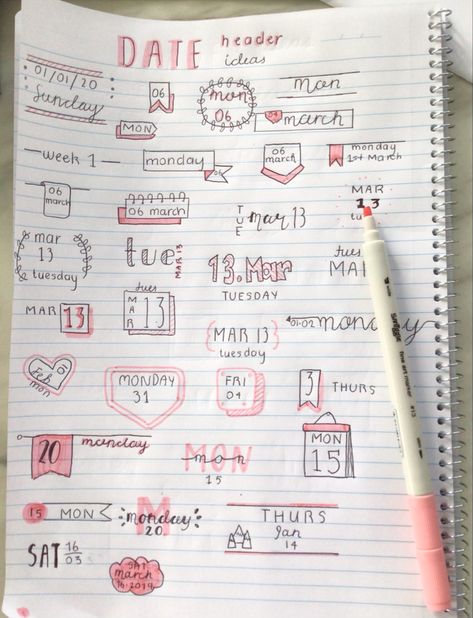 DATE header
ideas
01/01/20
Sunday
06
MON
mon
06
mon
march
week 1
monday
06
06
march
monday
1st March
06
march
06 march
TUE
mar 13
MAR
13
tu
mar
13
tuesday
tue
MAR 13
13. Mar
TUESDAY
tues
MA
MAR 13
tues
MAR
13
MAR 13
tuesday
01-02 monday
Feb 01
mon
MONDAY
31
FRI
04
3 THURS
20 monday
mon
MON
15
MON
15
15 MON
M
monday
20
THURS
Jan
14
SAT 16
03
SAT
march
16 2019